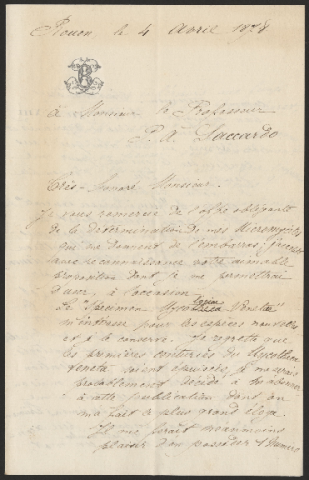 Rouen le 4 Avril 1878
à Monsieur le Professeur
P. A. Saccardo
Très-honoré Monsieur.
Je vous remercie de l'offre obligeante
de la détermination de mes Micromycètes
qui me donnent de l'embarras; j'accepte
avec reconnaissance votre aimable
proposition dont je me permettrai
d'user à l'occasion.
Le "Specimen Myco Veneta"
m'intéresse pour les espèces nouvelles
et je le conserve. Je regrette que
les premières centuries du Mycotheca
veneta soient épuisées, je me serais
probablement décidé à m'abonner
à cette publication dont on
m'a fait le plus grand éloge.
Il me serait néanmoins
plaisir d'en posséder